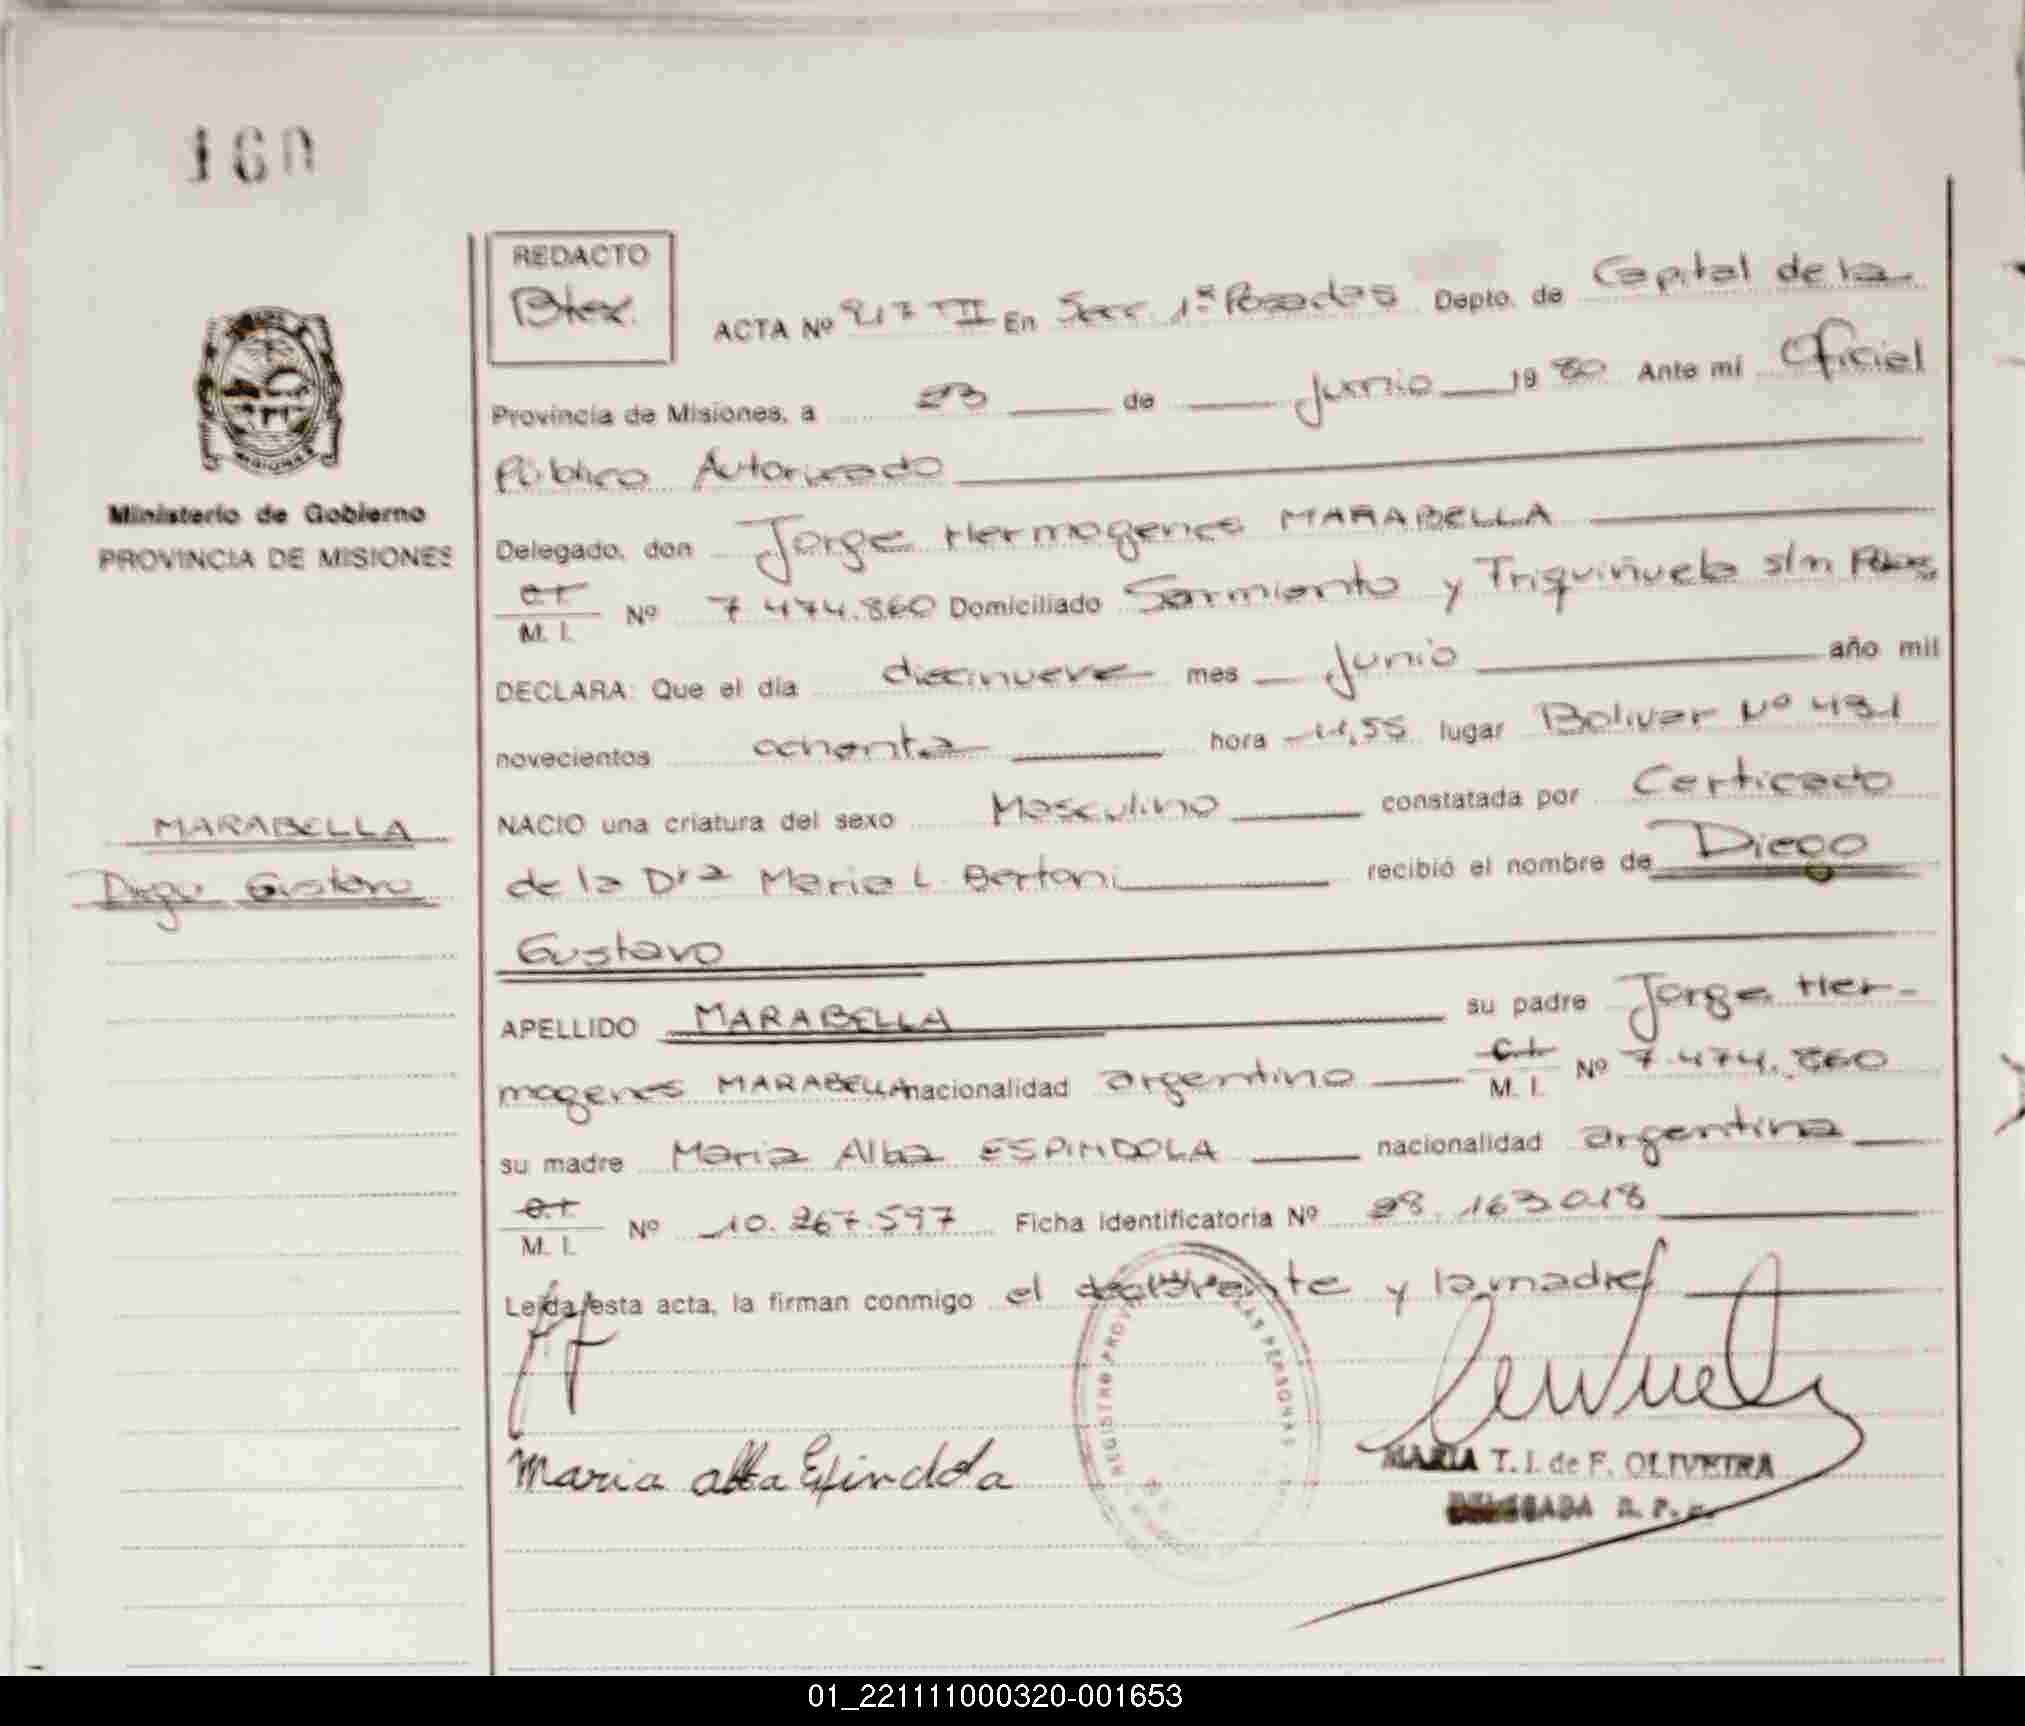 160
REDACTO
ACTA Nº 217 TII En Secc. 1ª Posadas Depto. de Capital de la
Provincia de Misiones, a 23 de Junio 19 80 Ante mí Oficial
Público Autorizado
Ministerio de Gobierno
PROVINCIA DE MISIONES
Delegado, don Jorge Hermogenes MARABELLA
C.I.
M. I. Nº 7.474.860 Domiciliado Sarmiento y Triquiñuela s/n Pdas
DECLARA: Que el día diecinueve mes Junio año mil
novecientos ochenta hora 11,55 lugar Bolivar Nº 431
NACIO una criatura del sexo Masculino constatada por Certicado
MARABELLA
Diego Gustavo
de la Dra Maria L. Bertoni recibió el nombre de Diego
Gustavo
APELLIDO MARABELLA su padre Jorge Her-
mogenes MARABELLA nacionalidad argentino C.I.
M. I. Nº 7.474.860
su madre Maria Alba ESPINDOLA nacionalidad argentina
C.I.
M. I. Nº 10.267.597 Ficha Identificatoria Nº 28.163.018
Leída esta acta, la firman conmigo el declarante y la madre
Maria alba Espindola
REGISTRO PROVINCIAL DE LAS PERSONAS
MARIA T. I. de F. OLIVEIRA
DELEGADA R. P. P.
01_221111000320-001653